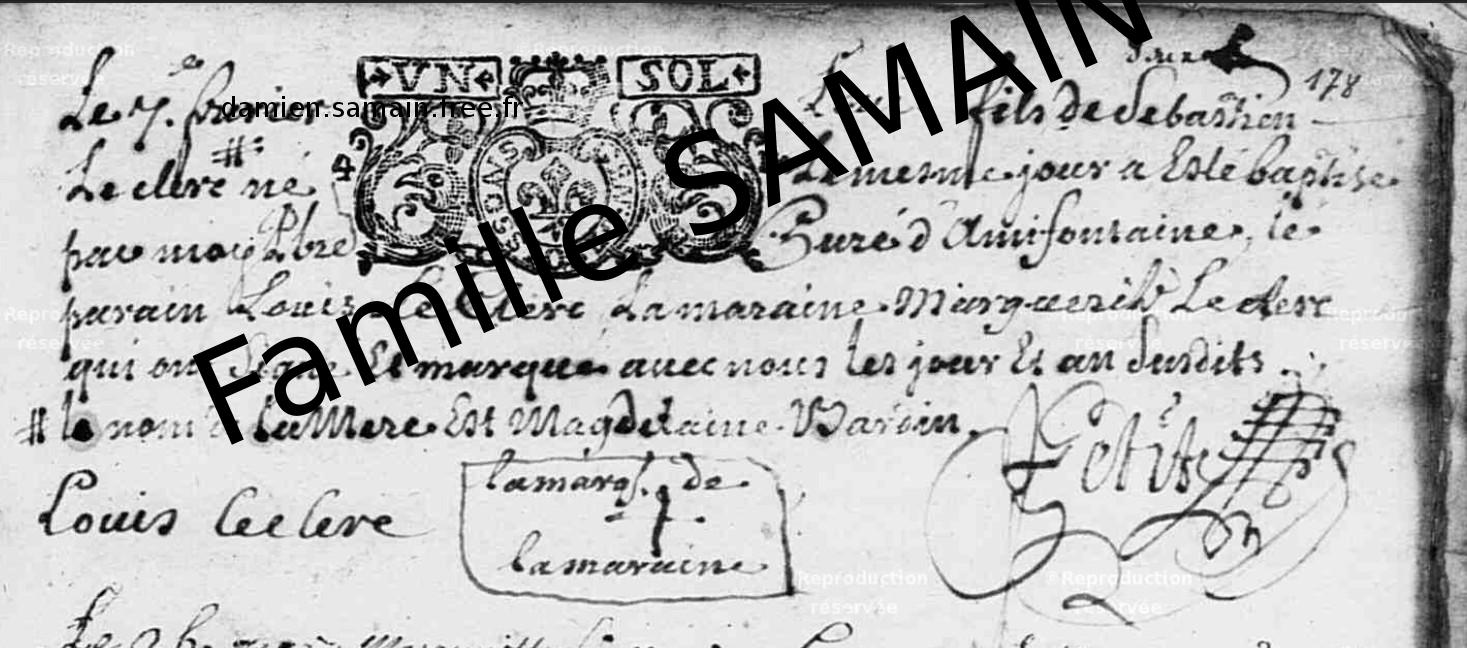 deux 178
VN SOL
SOISSONS
4
Le 7e. fevrier Louis fils de Sebastien
Le clerc # né Le mesme jour a Esté baptise
par moy Pbre Curé d'Amifontaine, le
parain Louis Le Clerc, La maraine Marguerite Le clerc
qui ont Signé Et marqué avec nous les jour Et an Susdits.
# le nom de la Mere Est Magdelaine
Louis leclerc
la marq. de
la maraine
Petit
damien.samain.free.fr
Famille SAMAIN
Reproduction
réservée
Reproduction
réservée
©Reproduction
réservée
Reproduction
réservée
Reproduction
réservée
©Reproduction
réservée